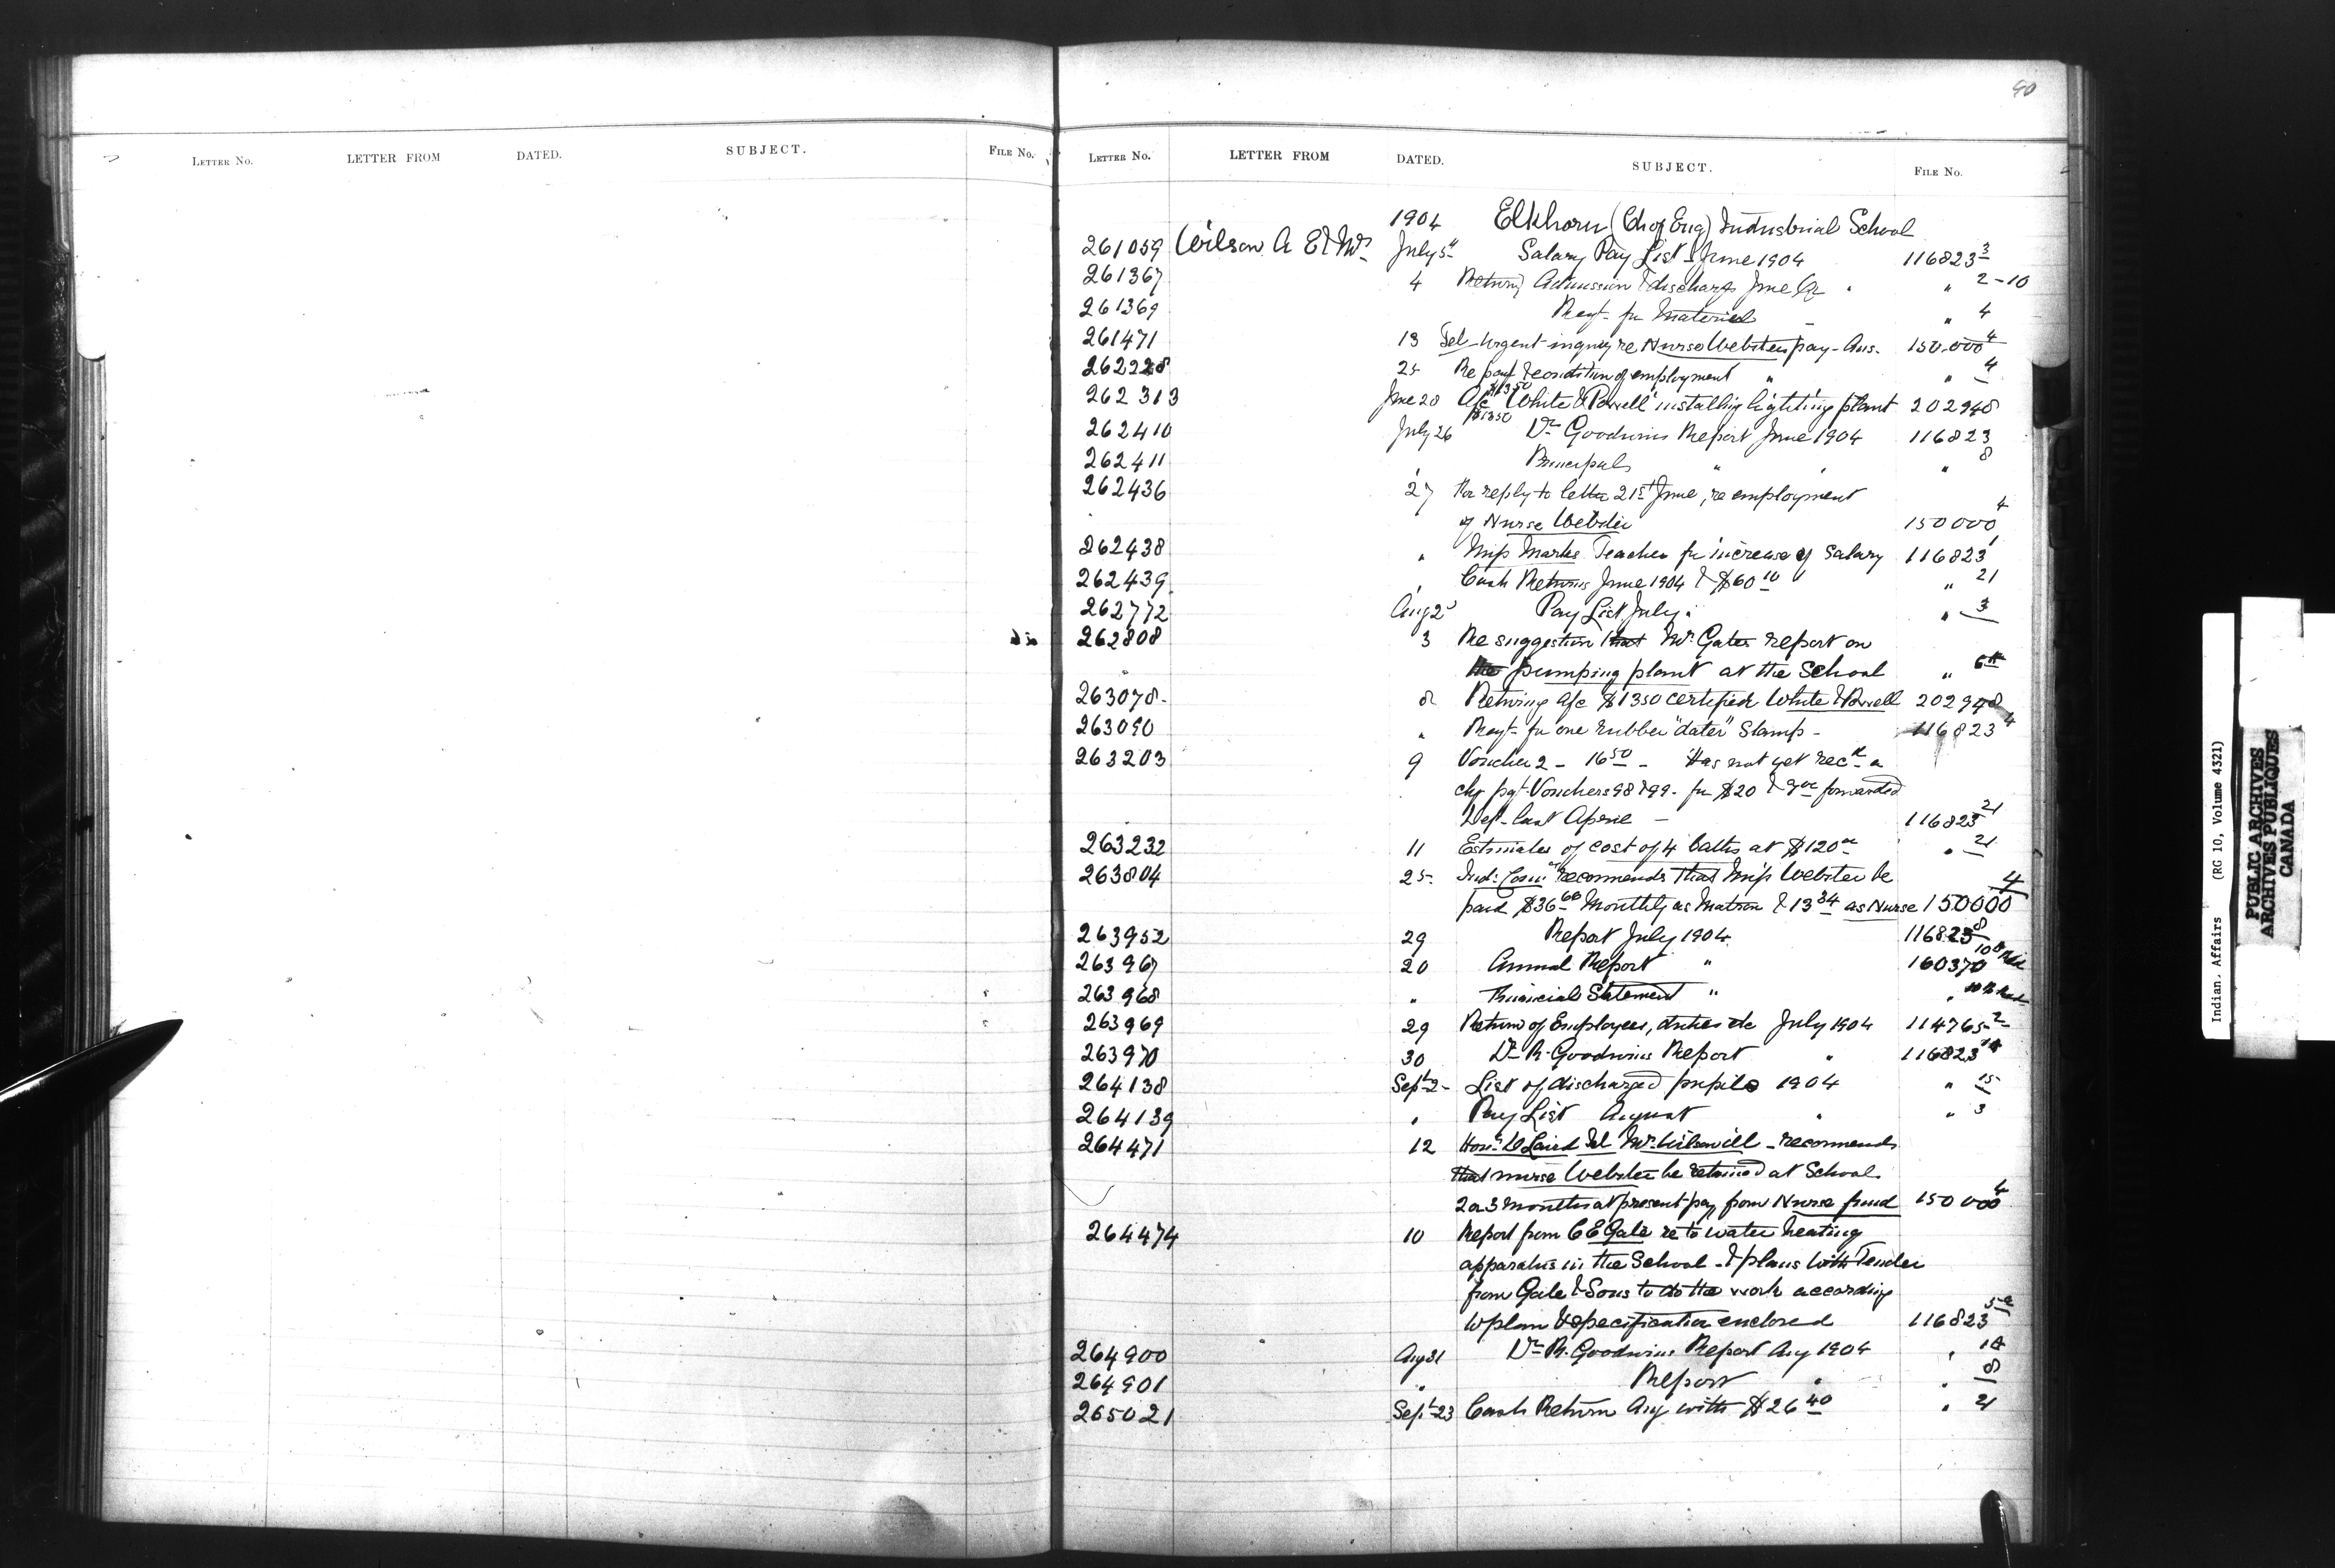 40
LETTER NO. LETTER FROM DATED. SUBJECT. FILE No.
LETTER NO. LETTER FROM DATED. SUBJECT. FILE No.
1904 Elkhorn (Ch of Eng) Industrial School
261059 Wilson A E Mr July 5th Salary Pay List June 1904 116823 3
261367 4 Return Admission & discharge June Qr " 2-10
261369 Reqt. for Material " 4
261471 13 Tel-Urgent inquiry re Nurse Websters pay-Ans. 150.000 4
262228 25 Re pay & condition of employment " " 4
262313 June 28 A/c $1350 White & Powell installing lighting plant 202948
262410 July 26 Dr Goodwins Report June 1904 116823
262411 Principals " " " 8
262436 27 For reply to letter 21st June, re employment
of Nurse Webster 150000 4
262438 " Miss Marks Teacher for increase of Salary 116823 1
262439 " Cash Returns June 1904 & $60 10 " 21
262772 Aug 2 Pay List July " 3
262808 3 Re suggestion that Mr. Gales report on
the pumping plant at the School "
263078 8 Returning A/c $1350 certified White & Powell 202948
263090 " Reqt. for one rubber "dater" Stamp - 116823 4
263203 9 Voucher 2 - 16 50 - Has not yet recd a
chq pyt Vouchers 98 & 99 - for $20 & forwarded
Dept. last April - 116823 21
263232 11 Estimates of cost of 4 baths at $120 00 " 21
263804 25 Ind: Comr recommends that Miss Webster be
paid $36 66 Monthly as Matron & 13 34 as Nurse 150000 4
263952 29 Report July 1904 116823 8
263967 20 Annual Report " 160370
263968 " Financial Statement " "
263969 29 Return of Employees, duties etc July 1904 114765-2
263970 30 Dr R. Goodwins Report " 116823
264138 Sept 2 - List of discharged pupils 1904 " 15
264139 " Pay List August " " 3
264471 12 Honr D Laird Tel Mr. Wilson ill - recommends
that nurse Webster be retained at School
2 or 3 months at present pay from Nurse fund 150000 4
264474 10 Report from C E Gale re to water heating
apparatus in the School - & plans with Tender
from Gale & Sons to do the work according
to plan & specification enclosed 116823
264900 Aug 31 Dr R. Goodwins Report Aug 1904 "
264901 " Report " " 8
265021 Sept 23 Cash Return Aug with $26 40 " 21
Indian. Affairs (RG 10, Volume 4321)
PUBLIC ARCHIVES
ARCHIVES PUBLIQUES
CANADA